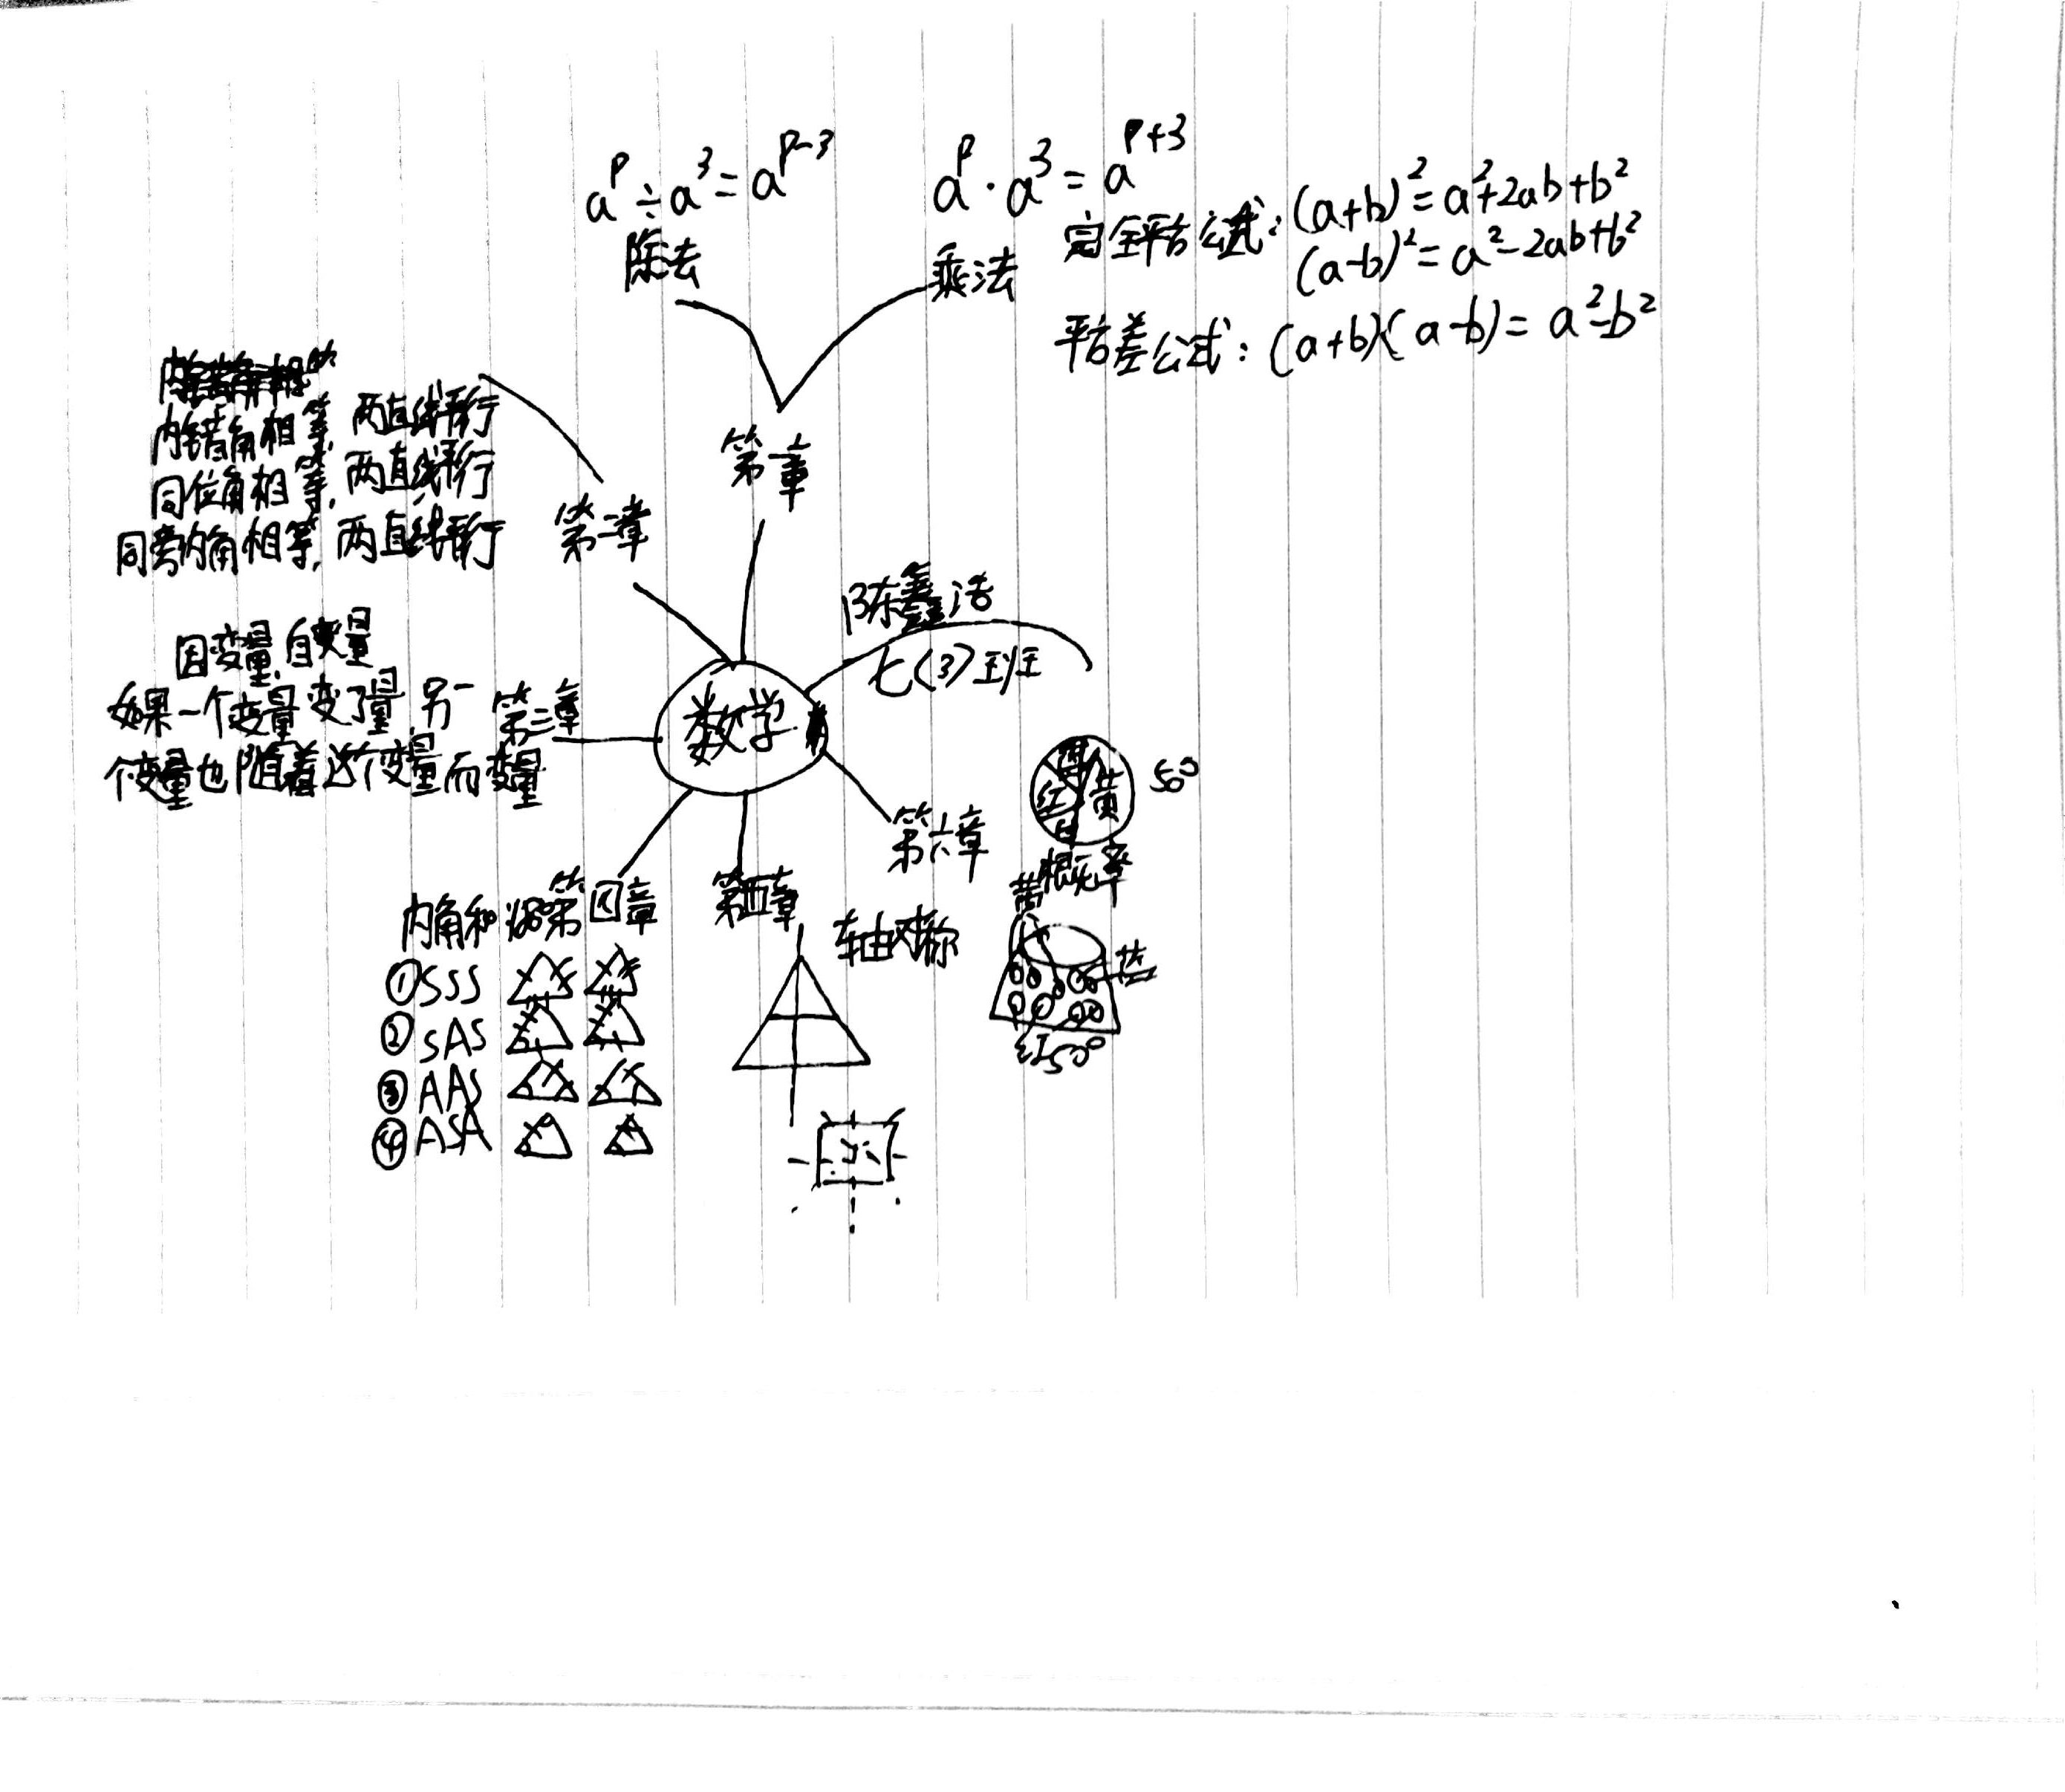 aᵖ÷a³=aᵖ⁻³
除法
aᵖ·a³=aᵖ⁺³
乘法
完全平方公式:(a+b)²=a²+2ab+b²
(a-b)²=a²-2ab+b²
平方差公式:(a+b)(a-b)=a²-b²
第一章
内错角相等,两直线平行
同位角相等,两直线平行
同旁内角相等,两直线平行
第二章
陈鑫浩
七(3)班
因变量,自变量
如果一个变量变了量,另一
个变量也随着这个变量而变量
第三章
数学
第六章
红
黄
白
50°
概率
红50°
内角和180°
第四章
①SSS
②SAS
③AAS
④ASA
第五章
轴对称